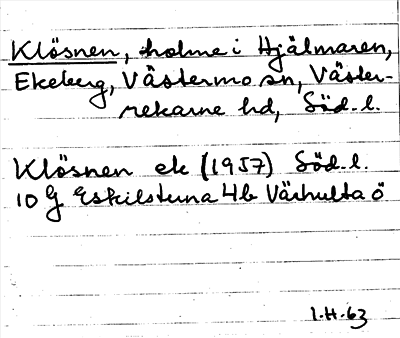 Klösnen, holme i Hjälmaren,
Ekeberg, Västermo sn, Väster-
rekarne hd, Söd. l.
Klösnen ek (1957) Söd. l.
10 G Eskilstuna 4b Värhulta ö
I.H. 63